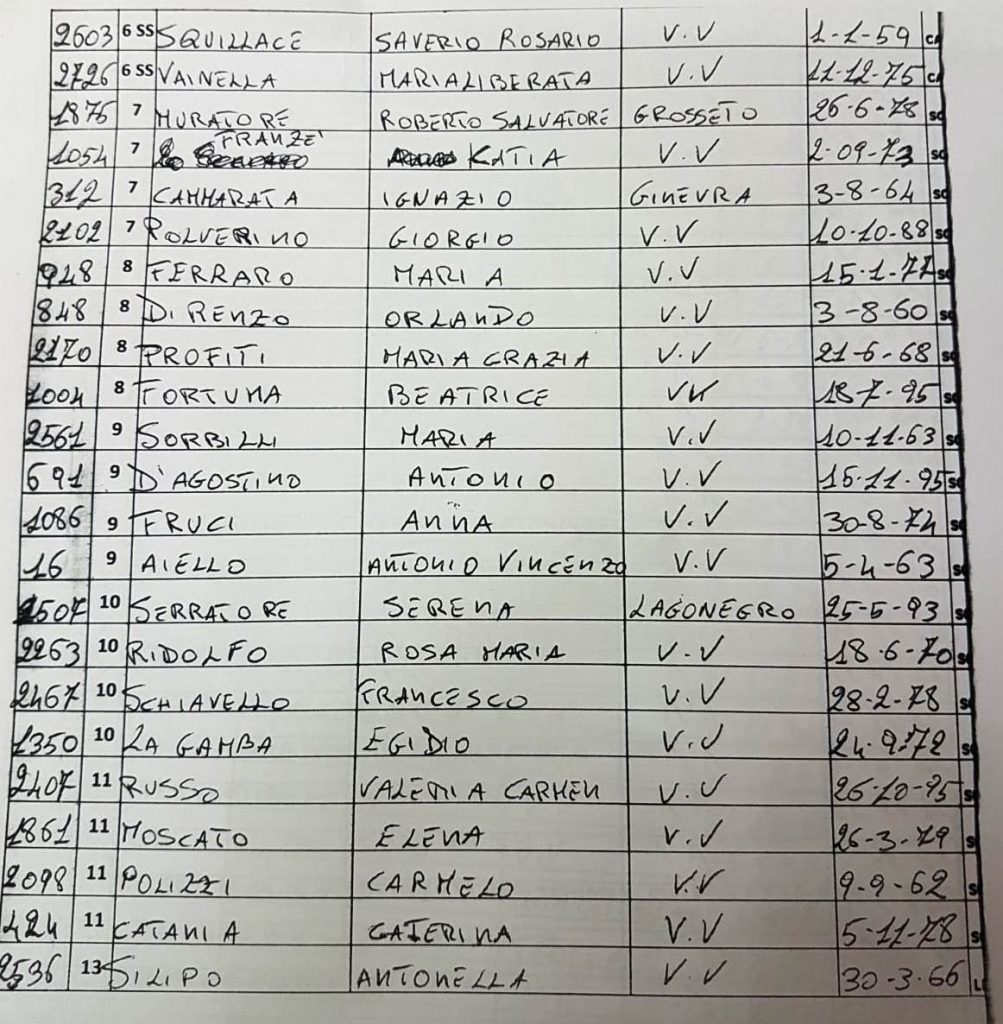 2603 6 SS SQUILLACE SAVERIO ROSARIO V.V 1-1-59
2726 6 SS VAINELLA MARIALIBERATA V.V 11-12-75
1876 7 MURATORE ROBERTO SALVATORE GROSSETO 26-6-78
1054 7 FRANZE' KATIA V.V 2-09-73
312 7 CAMMARATA IGNAZIO GINEVRA 3-8-64
2102 7 POLVERINO GIORGIO V.V 10-10-88
948 8 FERRARO MARIA V.V 15-1-77
848 8 DI RENZO ORLANDO V.V 3-8-60
2170 8 PROFITI MARIA GRAZIA V.V 21-6-68
1004 8 FORTUNA BEATRICE VV 18-7-95
2561 9 SORBILLI MARIA V.V 10-11-63
691 9 D'AGOSTINO ANTONIO V.V 15-11-95
1086 9 FRUCI ANNA V.V 30-8-74
16 9 AIELLO ANTONIO VINCENZO V.V 5-4-63
2507 10 SERRATORE SERENA LAGONEGRO 25-5-93
2263 10 RIDOLFO ROSA MARIA V.V 18-6-70
2467 10 SCHIAVELLO FRANCESCO V.V 28-2-78
1350 10 LA GAMBA EGIDIO V.V 24-9-72
2407 11 RUSSO VALERIA CARMEN V.V 26-10-95
1861 11 MOSCATO ELENA V.V 26-3-79
2098 11 POLIZZI CARMELO V.V 9-9-62
424 11 CATANIA CATERINA V.V 5-11-78
2536 13 SILIPO ANTONELLA V.V 30-3-66